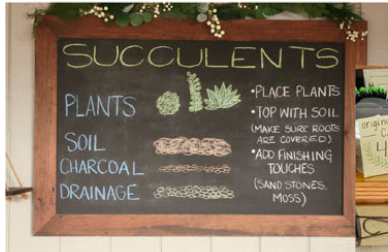 SUCCULENTS
PLANTS
SOIL
CHARCOAL
DRAINAGE
•PLACE PLANTS
•TOP WITH SOIL
(MAKE SURE ROOTS
ARE COVERED)
•ADD FINISHING
TOUCHES
(SAND, STONES,
MOSS)